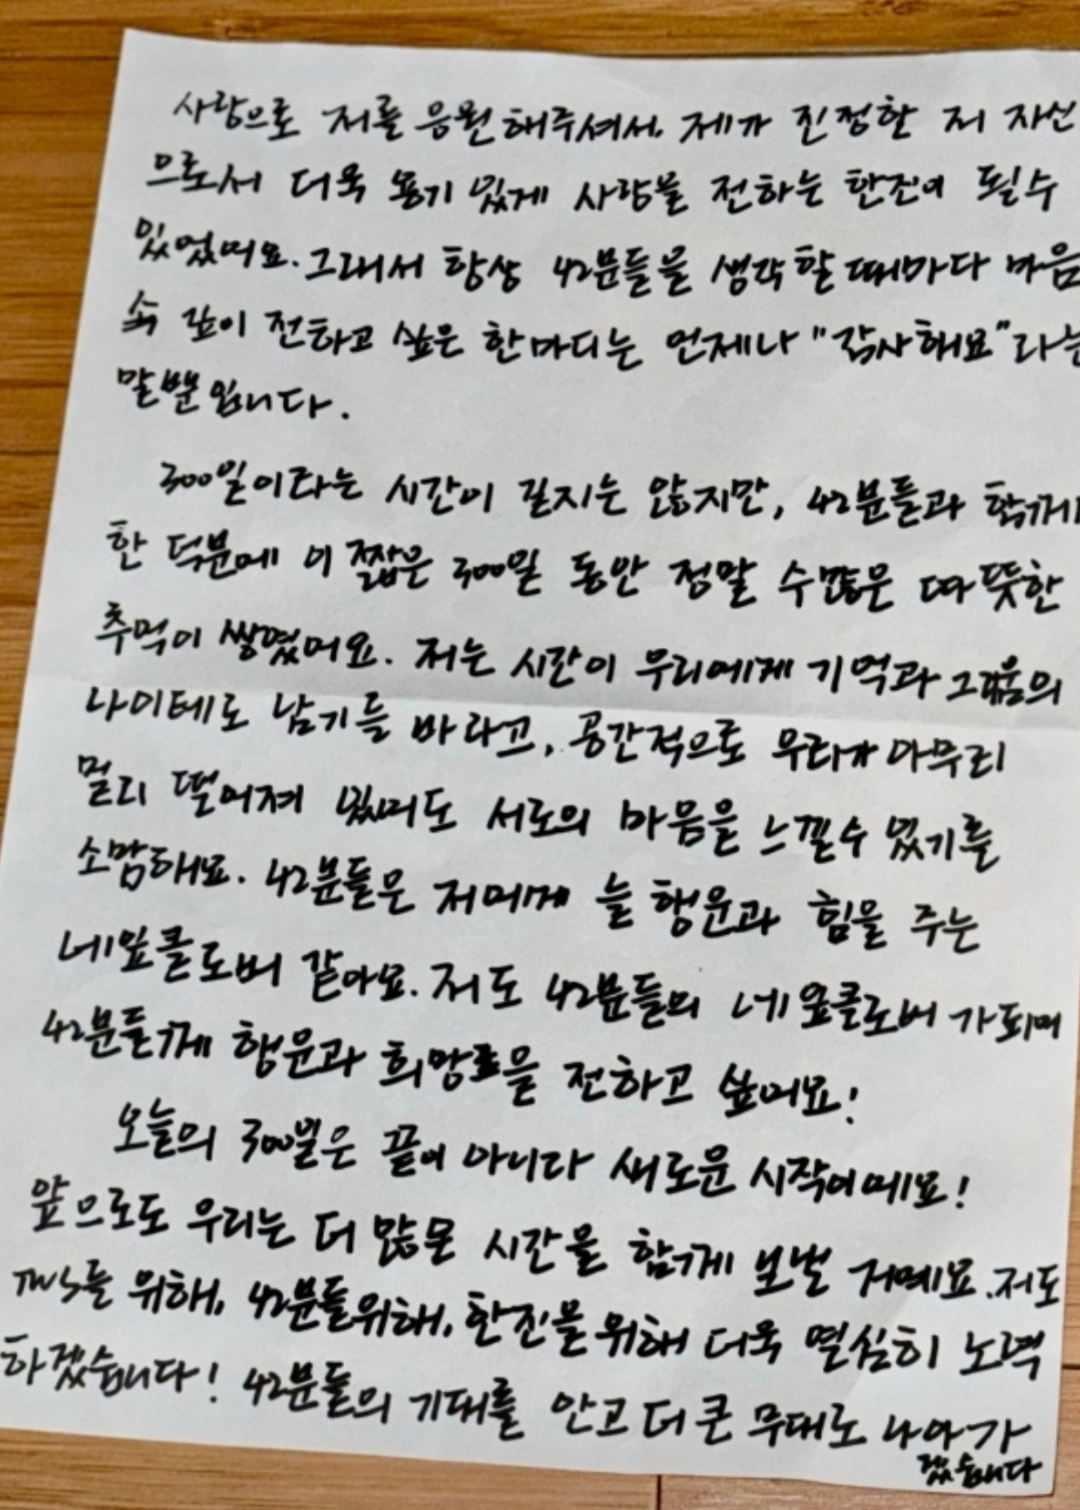 사랑으로 저를 응원해주셔서, 제가 진정한 저 자신
으로서 더욱 용기 있게 사랑을 전하는 한진이 될 수
있었어요. 그래서 항상 42분들을 생각할 때마다 마음
속 깊이 전하고 싶은 한마디는 언제나 "감사해요"라는
말뿐입니다.
300일이라는 시간이 길지는 않지만, 42분들과 함께
한 덕분에 이 짧은 300일 동안 정말 수많은 따뜻한
추억이 쌓였어요. 저는 시간이 우리에게 기억과 그리움의
나이테로 남기를 바라고, 공간적으로 우리가 아무리
멀리 떨어져 있어도 서로의 마음을 느낄 수 있기를
소망해요. 42분들은 저에게 늘 행운과 힘을 주는
네잎클로버 같아요. 저도 42분들의 네잎클로버가 되어
42분들께 행운과 희망을 전하고 싶어요!
오늘의 300일은 끝이 아니라 새로운 시작이에요!
앞으로도 우리는 더 많은 시간을 함께 보낼 거예요. 저도
TWS를 위해, 42분들 위해, 한진을 위해 더욱 열심히 노력
하겠습니다! 42분들의 기대를 안고 더 큰 무대로 나아가
겠습니다